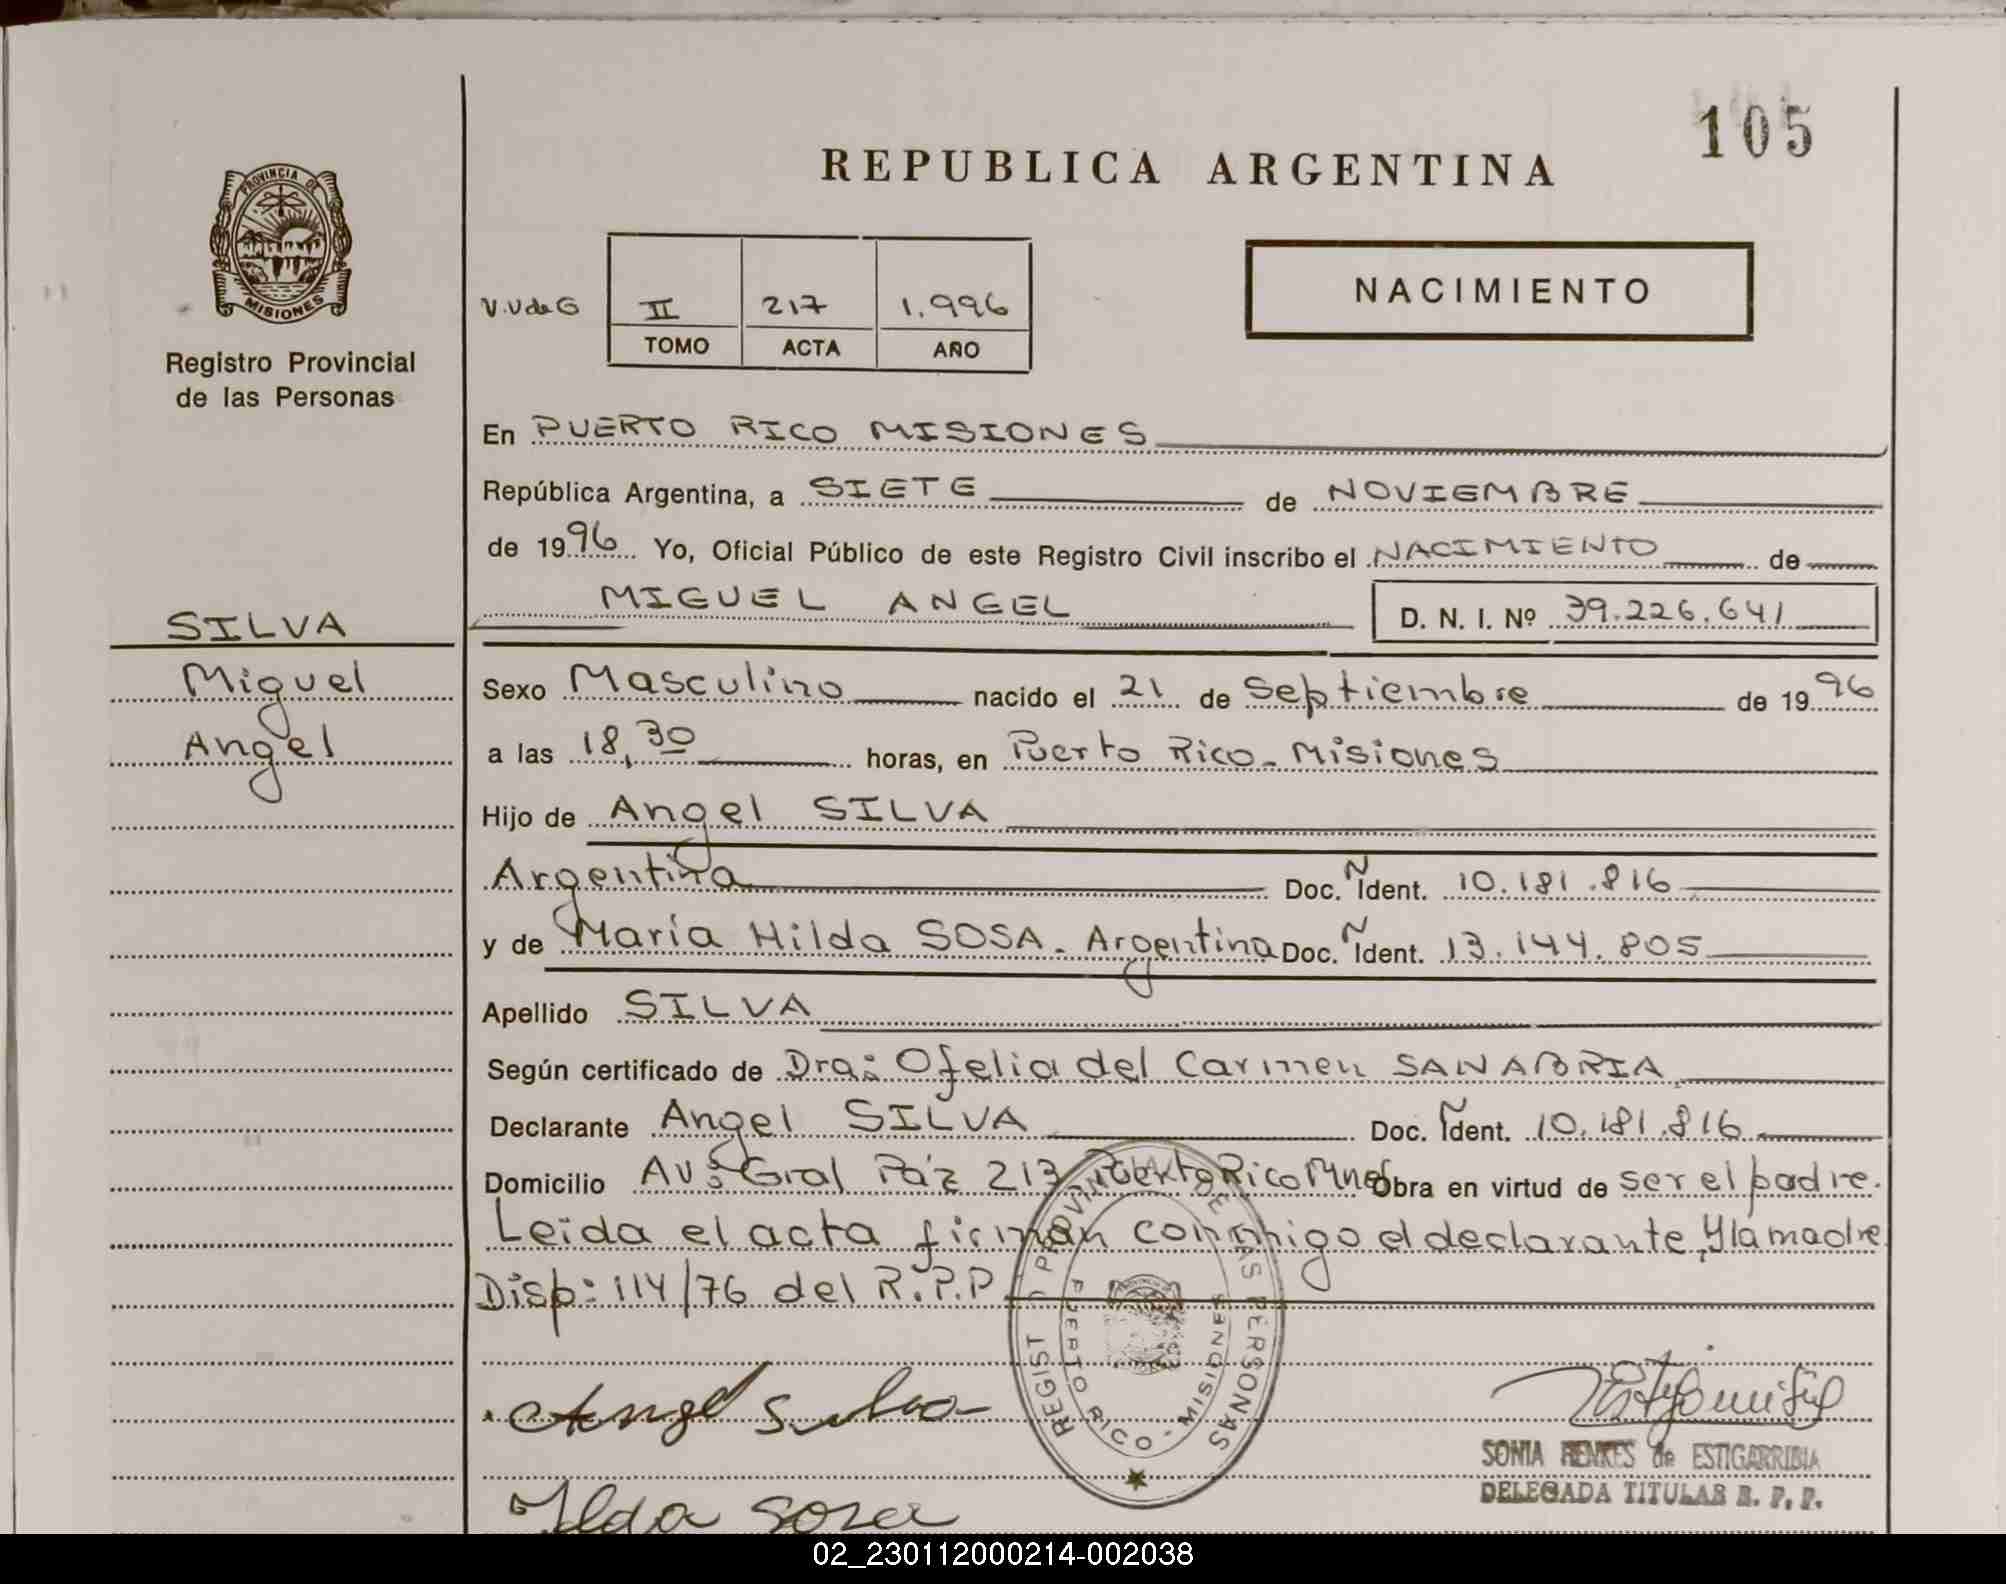 105
REPUBLICA ARGENTINA
PROVINCIA DE
MISIONES
Registro Provincial
de las Personas
NACIMIENTO
V.V de G II 217 1.996
TOMO ACTA AÑO
En PUERTO RICO MISIONES
República Argentina, a SIETE de NOVIEMBRE
de 1996 Yo, Oficial Público de este Registro Civil inscribo el NACIMIENTO de
MIGUEL ANGEL D. N. I. Nº 39.226.641
SILVA
Miguel
Angel
Sexo Masculino nacido el 21 de Septiembre de 1996
a las 18,30 horas, en Puerto Rico - Misiones
Hijo de Angel SILVA
Argentina Doc. Ñ Ident. 10.181.816
y de María Hilda SOSA - Argentina Doc. Ñ Ident. 13.144.805
Apellido SILVA
Según certificado de Dra: Ofelia del Carmen SANABRIA
Declarante Angel SILVA Doc. Ñ Ident. 10.181.816
Domicilio Av: Gral Páz 213 Puerto Rico Mnes Obra en virtud de ser el padre.
Leída el acta firman conmigo el declarante, y la madre
Disp: 114/76 del R.P.P
PUERTO RICO - MISIONES
Angel Silva
SONIA HENKES de ESTIGARRIBIA
DELEGADA TITULAR R. P. P.
Ilda Sosa
02_230112000214-002038